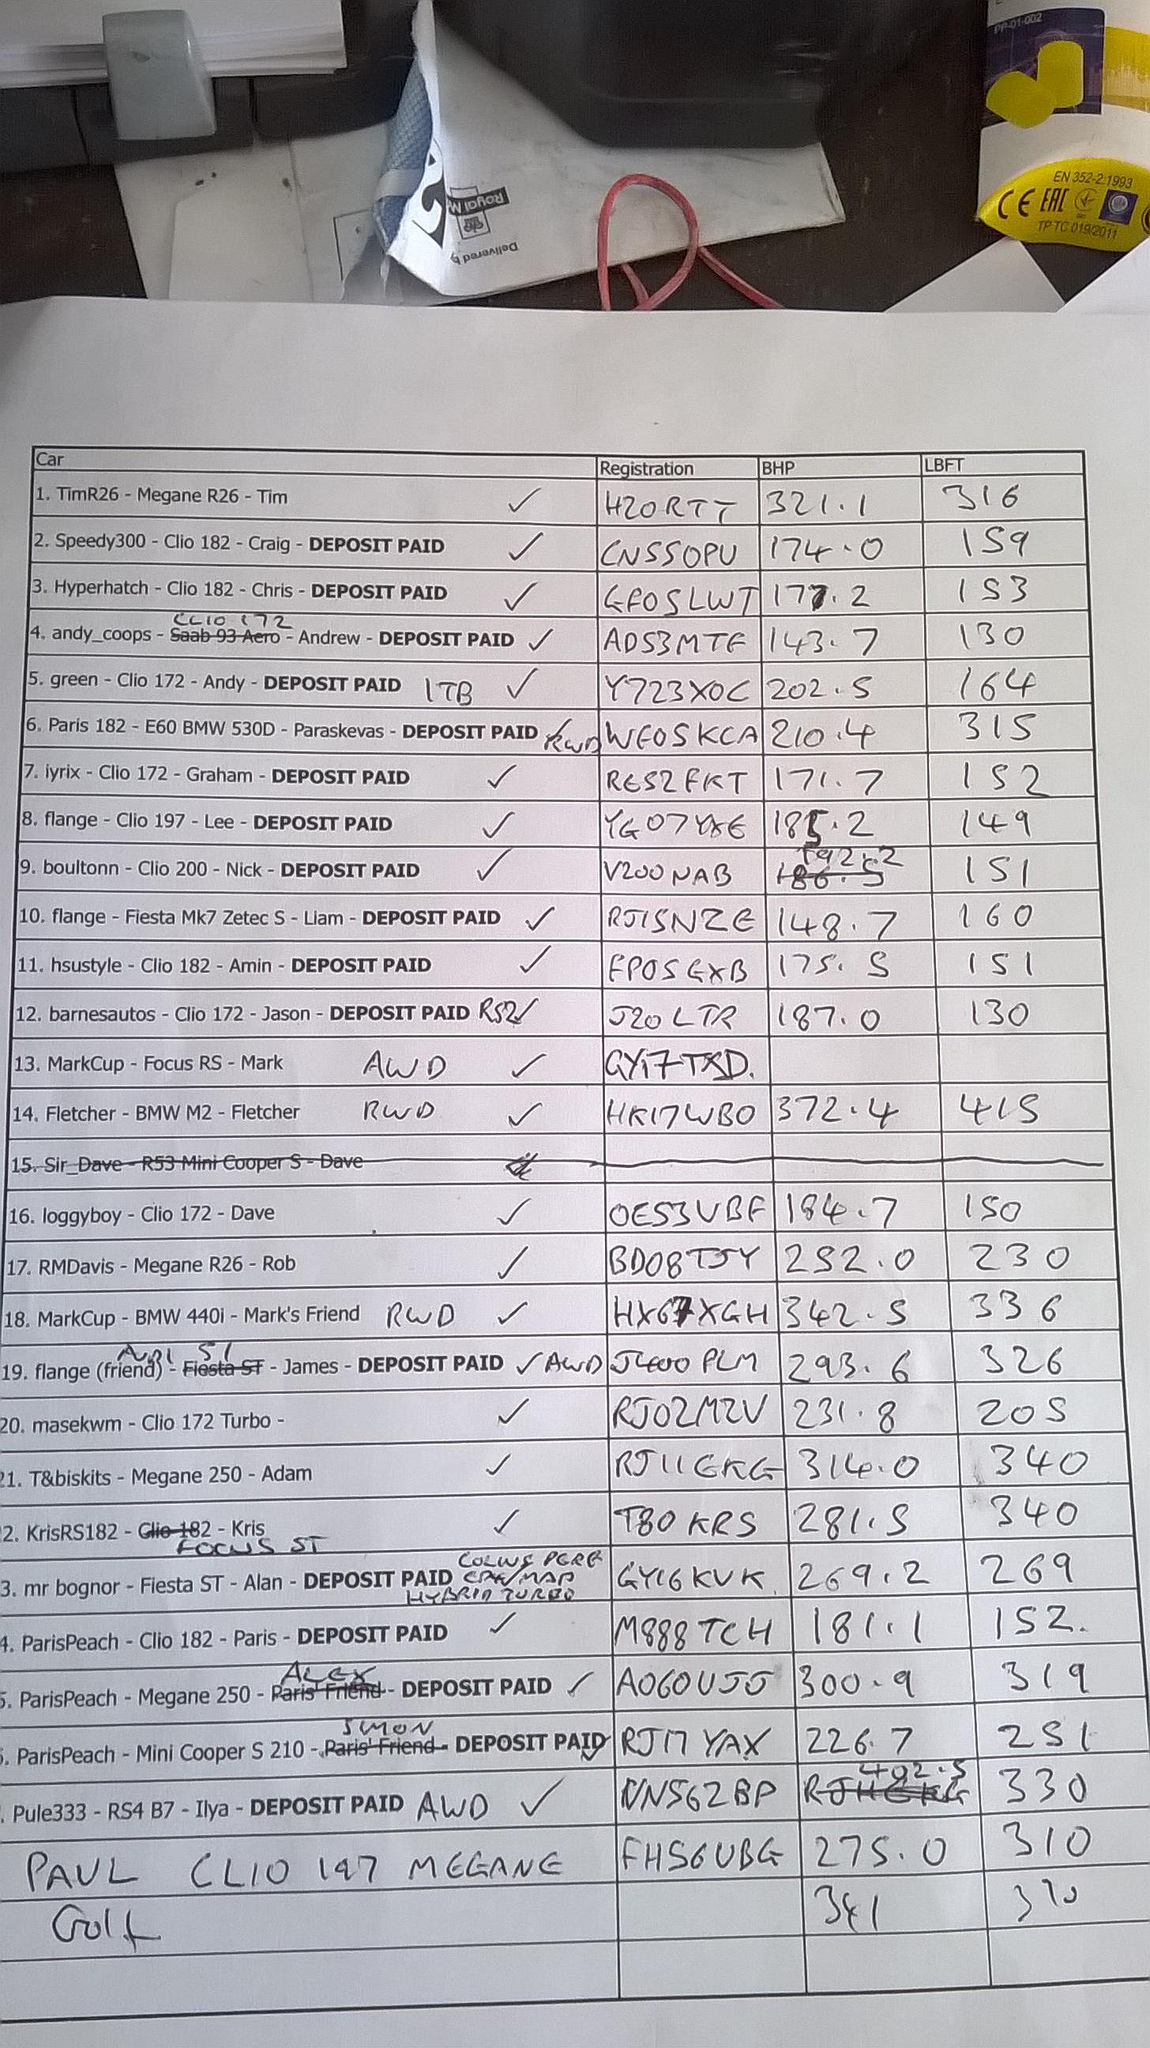 PP-01-002
EN 352-2:1993
CE EAC
TP TC 019/2011
Royal M
Delivered b
Car Registration BHP LBFT
1. TimR26 - Megane R26 - Tim ✓ H20RTT 321.1 316
2. Speedy300 - Clio 182 - Craig - DEPOSIT PAID ✓ CN55OPU 174.0 159
3. Hyperhatch - Clio 182 - Chris - DEPOSIT PAID ✓ GF05LWT 177.2 153
CLIO 172
4. andy_coops - Saab 93 Aero - Andrew - DEPOSIT PAID ✓ AD53MTF 143.7 130
5. green - Clio 172 - Andy - DEPOSIT PAID ITB ✓ Y723XOC 202.5 164
6. Paris 182 - E60 BMW 530D - Paraskevas - DEPOSIT PAID ✓ RWD WF05KCA 210.4 315
7. iyrix - Clio 172 - Graham - DEPOSIT PAID ✓ RE52FKT 171.7 152
8. flange - Clio 197 - Lee - DEPOSIT PAID ✓ YG07YXE 185.2 149
192.2
9. boultonn - Clio 200 - Nick - DEPOSIT PAID ✓ V200NAB 186.5 151
10. flange - Fiesta Mk7 Zetec S - Liam - DEPOSIT PAID ✓ RJ15NZE 148.7 160
11. hsustyle - Clio 182 - Amin - DEPOSIT PAID ✓ FP05GXB 175.5 151
12. barnesautos - Clio 172 - Jason - DEPOSIT PAID RS2 ✓ J20LTR 187.0 130
13. MarkCup - Focus RS - Mark AWD ✓ GY17TXD.
14. Fletcher - BMW M2 - Fletcher RWD ✓ HK17WBO 372.4 415
15. Sir_Dave - R53 Mini Cooper S - Dave
16. loggyboy - Clio 172 - Dave ✓ OE53VBF 184.7 150
17. RMDavis - Megane R26 - Rob ✓ BD08TJY 252.0 230
18. MarkCup - BMW 440i - Mark's Friend RWD ✓ HX67XGH 342.5 336
AUDI S1
19. flange (friend) - Fiesta ST - James - DEPOSIT PAID ✓ AWD J400PLM 293.6 326
20. masekwm - Clio 172 Turbo - ✓ RJ02MZV 231.8 205
21. T&biskits - Megane 250 - Adam ✓ RJ11GKG 314.0 340
2. KrisRS182 - Clio 182 - Kris ✓ T80KRS 281.5 340
FOCUS ST
3. mr bognor - Fiesta ST - Alan - DEPOSIT PAID GY16KVK 269.2 269
HYBRID TURBO
4. ParisPeach - Clio 182 - Paris - DEPOSIT PAID ✓ M888TCH 181.1 152.
ALEX
5. ParisPeach - Megane 250 - Paris' Friend - DEPOSIT PAID ✓ AO60UJJ 300.9 319
SIMON
. ParisPeach - Mini Cooper S 210 - Paris' Friend - DEPOSIT PAID ✓ RJ17YAX 226.7 251
402.5
. Pule333 - RS4 B7 - Ilya - DEPOSIT PAID AWD ✓ NN56ZBP RJ11GKG 330
PAUL CLIO 197 MEGANE FH56UBG 275.0 310
Golf 341